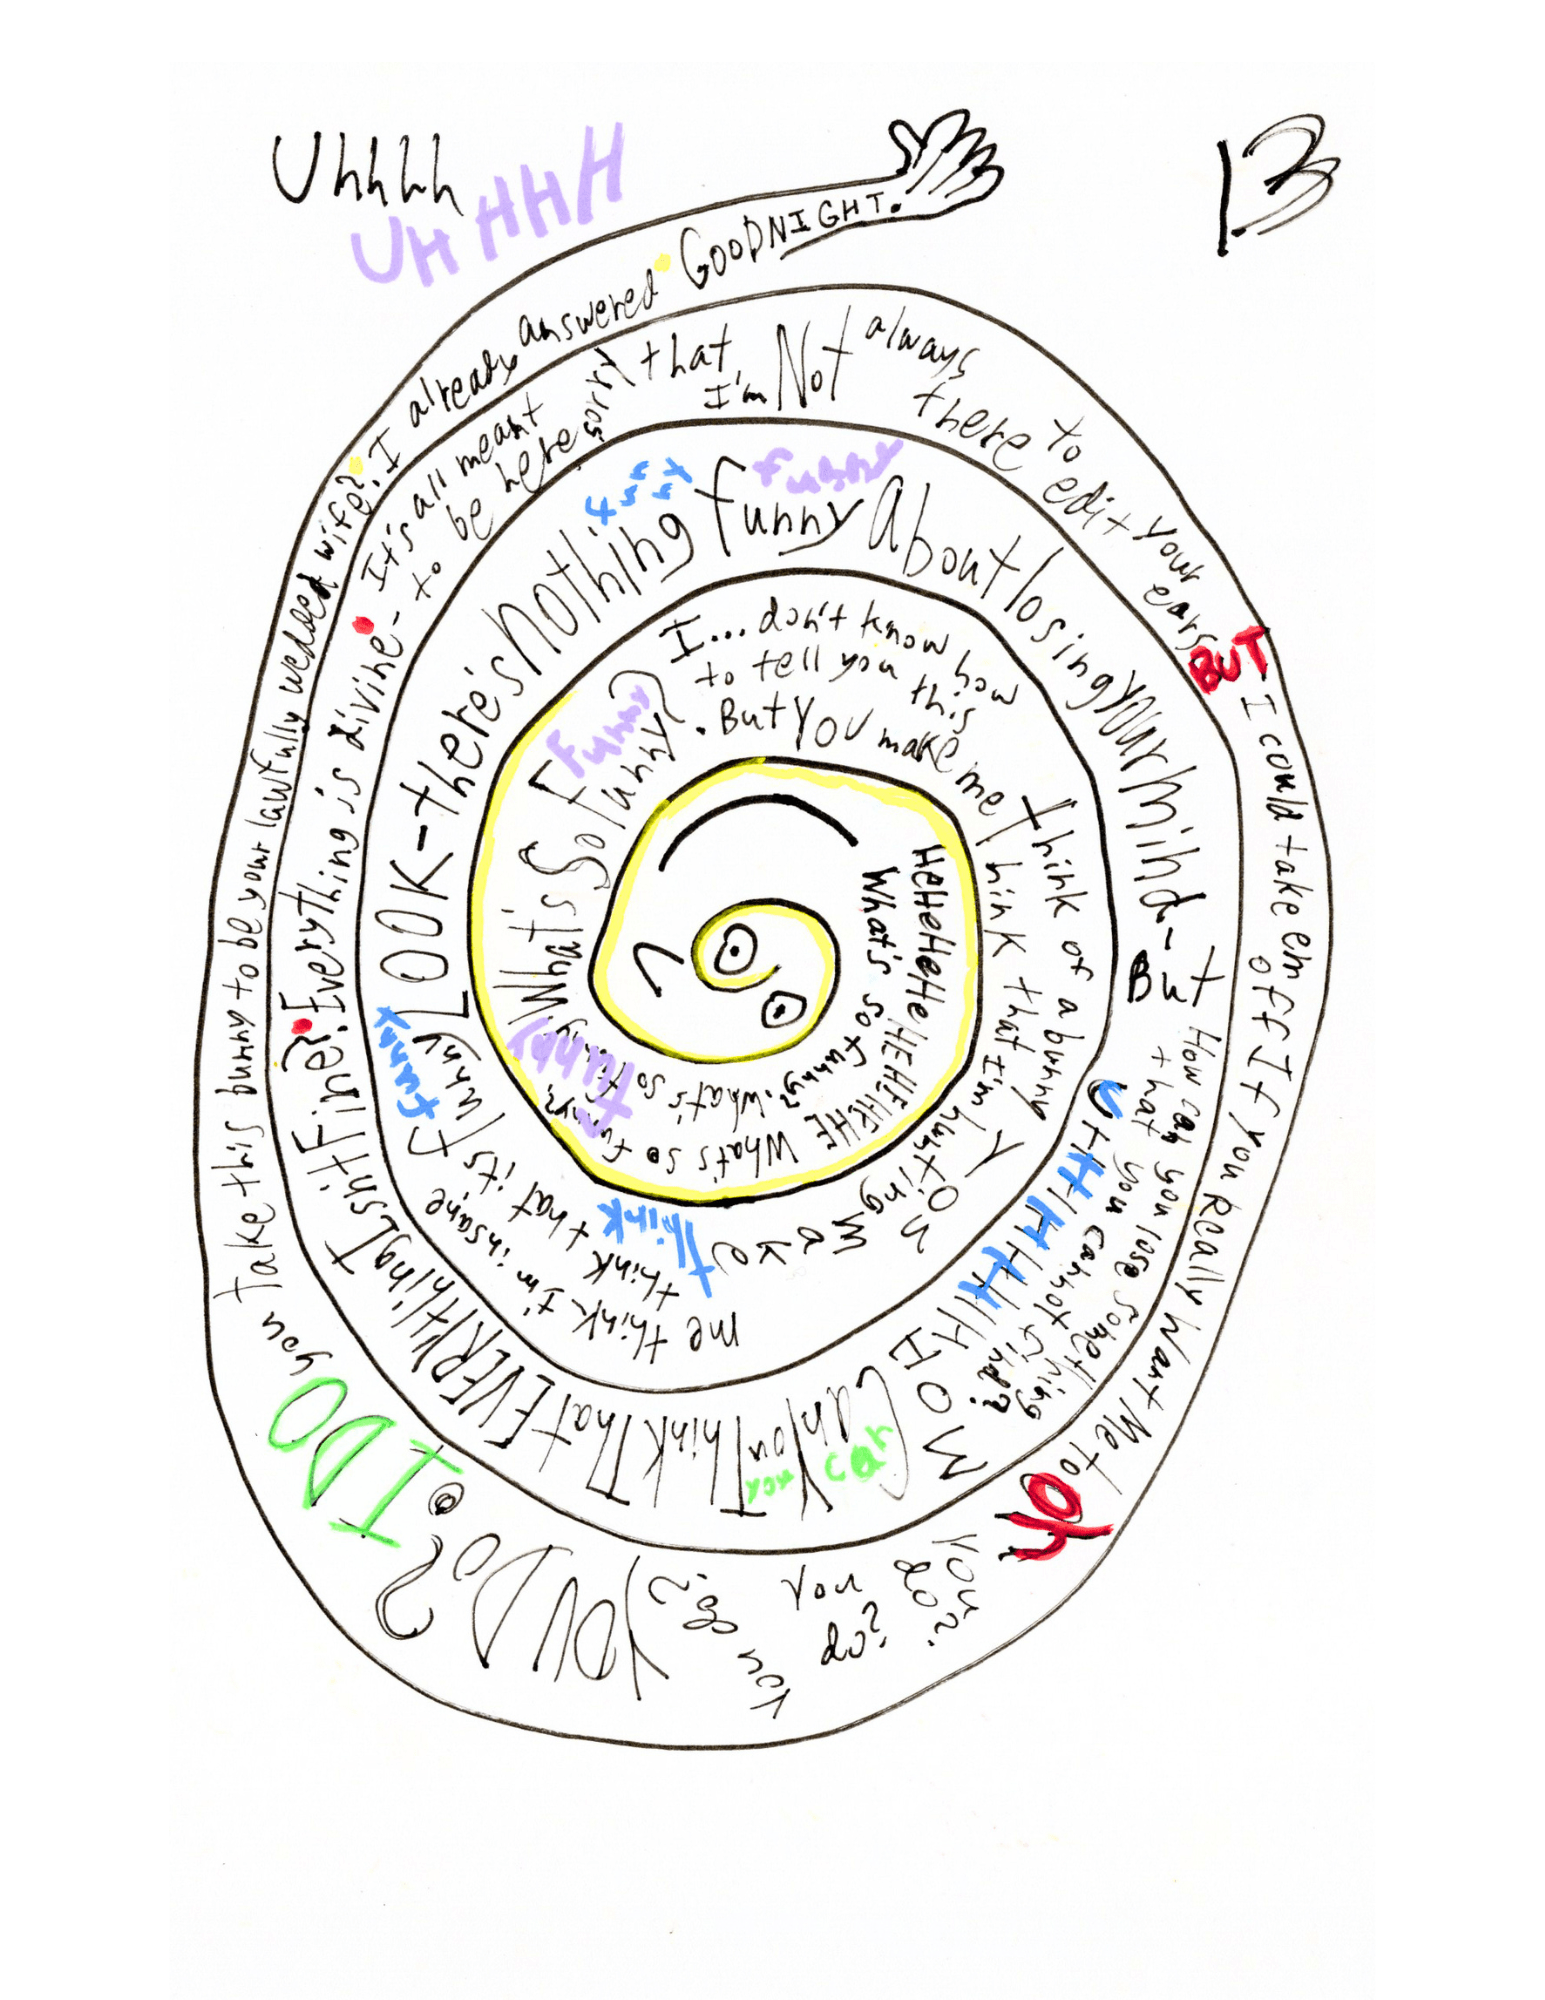 Uhhhh
UHHHH
13
HeHeHeHeHe HE HE HEHEHE
What's so funny? What's so funny?
What's so funny?
What's So Funny?
Funny
funny
I... don't know how
to tell you this
. But YOU make me think that I'm hunting
think of a bunny
YOU make
me think I'm insane
think that its funny
think
think
funny
LOOK-there's nothing funny About losing your mind-
funny
funny
But
How can you lose something
that you cannot find?
UHHHHHH
HHH
MOM
Can You Think That EVERYthing Isn't Fine?
can
you
. Everything is divine-
It's all meant
to be here
sorry that
I'm Not always there to edit your ears
BUT I could take em
off If you Really Want Me to
Oh
you do?
you do?
you do?
YOU DO?
I DO
you Take this bunny to be your lawfully wedded wife?
. I already answered. GOODNIGHT.